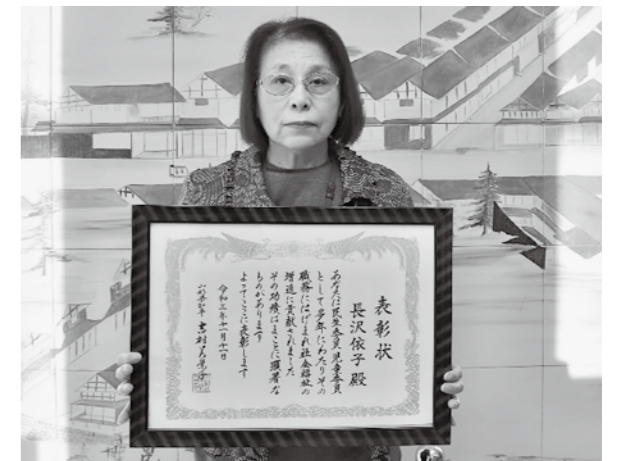 表彰状
長沢依子殿
あなたは民生委員児童委員
として多年にわたりその
職務にはげまれ社会福祉の
増進に貢献されました
その功績はまことに顕著な
ものがあります
よってここに表彰します
令和三年十一月十一日
山形県知事 吉村美栄子